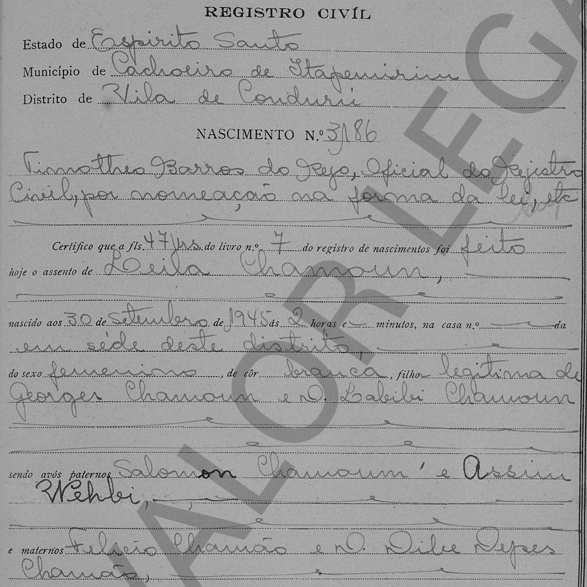 REGISTRO CIVÍL
Estado de Espirito Santo
Município de Cachoeiro de Itapemirim
Distrito de Vila de Conduru
NASCIMENTO N.º 3186
Timotheo Barros do Rego, Oficial do Rejistro
Civil, por nomeação na forma da lei, etc
Certifico que a fls. 47 do livro n.º 7 do registro de nascimentos foi feito
hoje o assento de Leila Chamoun,
nascido aos 30 de Setembro de 1945 ás 2 horas e minutos, na casa n.º da
em séde deste distrito,
do sexo femenino, de côr branca, filho legitima de
Georges Chamoun e D. Labibi Chamoun
sendo avós paternos Salomon Chamoun e Assim
Wehbi,
e maternos Chamão e D.
Chamão,
VALOR LEGA